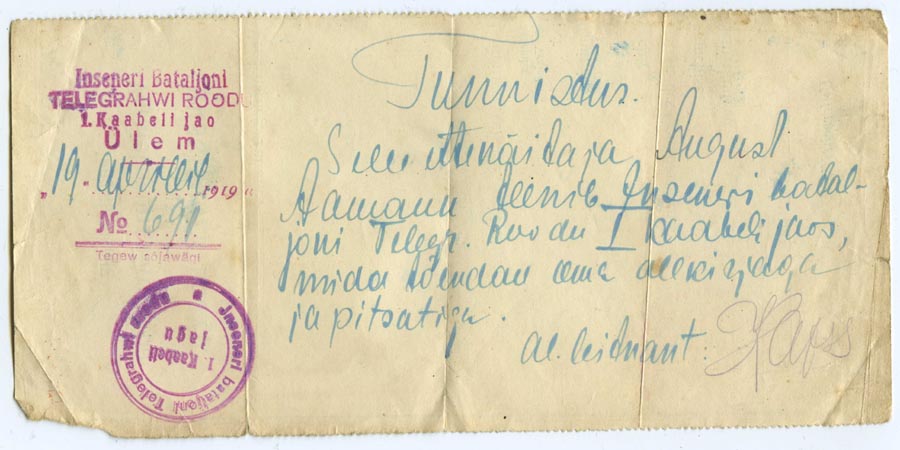 Inseneri Bataljoni
TELEGRAHWI ROODU
1. Kaabeli jao
Ülem
"19" aprillil 1919 a
No 691
Tegew sõjawägi
Inseneri bataljoni Telegrahwi roodu
1. Kaabeli
jagu
Tunnistus.
Selle ettenäitaja August
Aamann teenib Inseneri batal-
joni Telegr. Roodu I kaabeli jaos,
mida tõendan oma allkirjaga
ja pitsatiga.
al. leitnant: